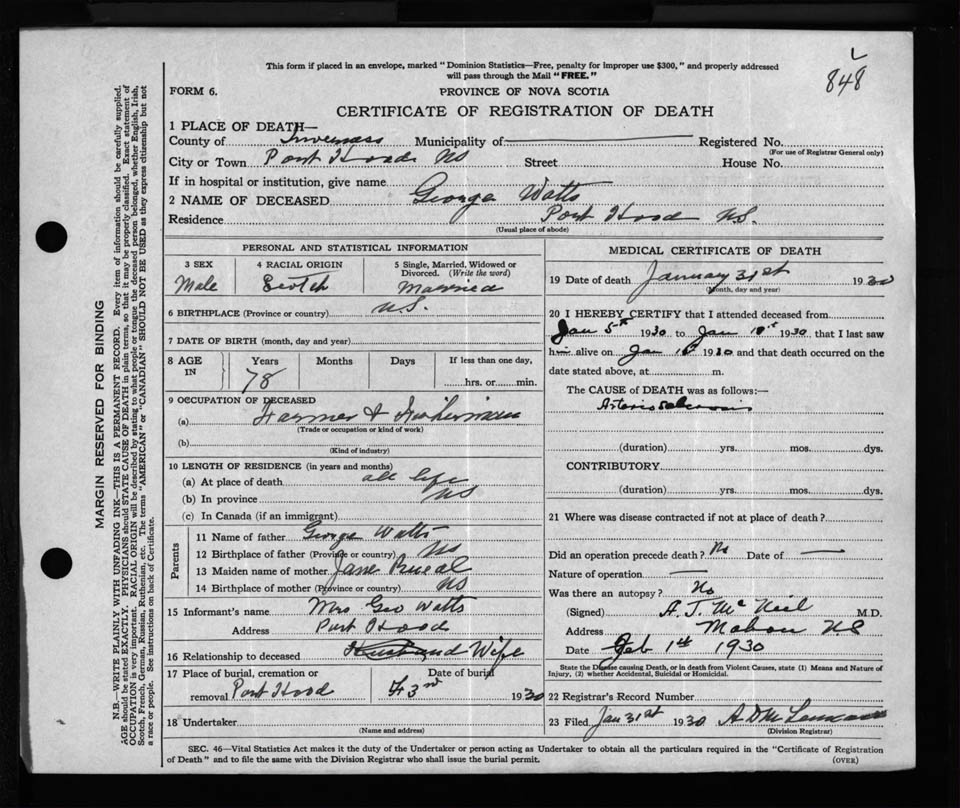 848
This form if placed in an envelope, marked "Dominion Statistics—Free, penalty for improper use $300," and properly addressed
will pass through the Mail "FREE."
FORM 6.
PROVINCE OF NOVA SCOTIA
CERTIFICATE OF REGISTRATION OF DEATH
1 PLACE OF DEATH—
County of Inverness Municipality of Registered No.
(For use of Registrar General only)
City or Town Port Hood NS Street House No.
If in hospital or institution, give name
2 NAME OF DECEASED George Watts
Residence Port Hood N.S.
(Usual place of abode)
PERSONAL AND STATISTICAL INFORMATION
3 SEX 4 RACIAL ORIGIN 5 Single, Married, Widowed or
Divorced. (Write the word)
Male Scotch Married
6 BIRTHPLACE (Province or country) N.S.
7 DATE OF BIRTH (month, day and year)
8 AGE IN Years Months Days If less than one day,
78 hrs. or min.
9 OCCUPATION OF DECEASED
(a) Farmer & Fisherman
(Trade or occupation or kind of work)
(b)
(Kind of industry)
10 LENGTH OF RESIDENCE (in years and months)
(a) At place of death all life
(b) In province NS
(c) In Canada (if an immigrant)
Parents
11 Name of father George Watts
12 Birthplace of father (Province or country) NS
13 Maiden name of mother Jane
14 Birthplace of mother (Province or country) NS
15 Informant's name Mrs Geo Watts
Address Port Hood
16 Relationship to deceased Husband Wife
17 Place of burial, cremation or Date of burial
removal Port Hood F 3rd 1930
18 Undertaker
(Name and address)
MEDICAL CERTIFICATE OF DEATH
19 Date of death January 31st 1930
(Month, day and year)
20 I HEREBY CERTIFY that I attended deceased from
Jan 5th 1930 to Jan 1930, that I last saw
him alive on Jan 1930 and that death occurred on the
date stated above, at m.
The CAUSE of DEATH was as follows:—
Arteriosclerosis
(duration) yrs. mos. dys.
CONTRIBUTORY
(duration) yrs. mos. dys.
21 Where was disease contracted if not at place of death?
Did an operation precede death? No Date of —
Nature of operation —
Was there an autopsy? No
(Signed) A. J. McNeil M.D.
Address Mabou N.S
Date Feb 1st 1930
State the Disease causing Death, or in death from Violent Causes, state (1) Means and Nature of
Injury, (2) whether Accidental, Suicidal or Homicidal.
22 Registrar's Record Number
23 Filed Jan 31st 1930 A D McLennan
(Division Registrar)
SEC. 46—Vital Statistics Act makes it the duty of the Undertaker or person acting as Undertaker to obtain all the particulars required in the "Certificate of Registration
of Death" and to file the same with the Division Registrar who shall issue the burial permit.
(OVER)
MARGIN RESERVED FOR BINDING
N.B.—WRITE PLAINLY WITH UNFADING INK—THIS IS A PERMANENT RECORD. Every item of information should be carefully supplied.
AGE should be stated EXACTLY. PHYSICIANS should STATE CAUSE OF DEATH in plain terms, so that it may be properly classified. Exact statement of
OCCUPATION is very important. RACIAL ORIGIN will be described by stating to what people or tongue the deceased person belonged, whether English, Irish,
Scotch, French, German, Russian, Ruthenian, etc. The terms "AMERICAN" or "CANADIAN" SHOULD NOT BE USED as they express citizenship but not
a race or people. See instructions on back of Certificate.